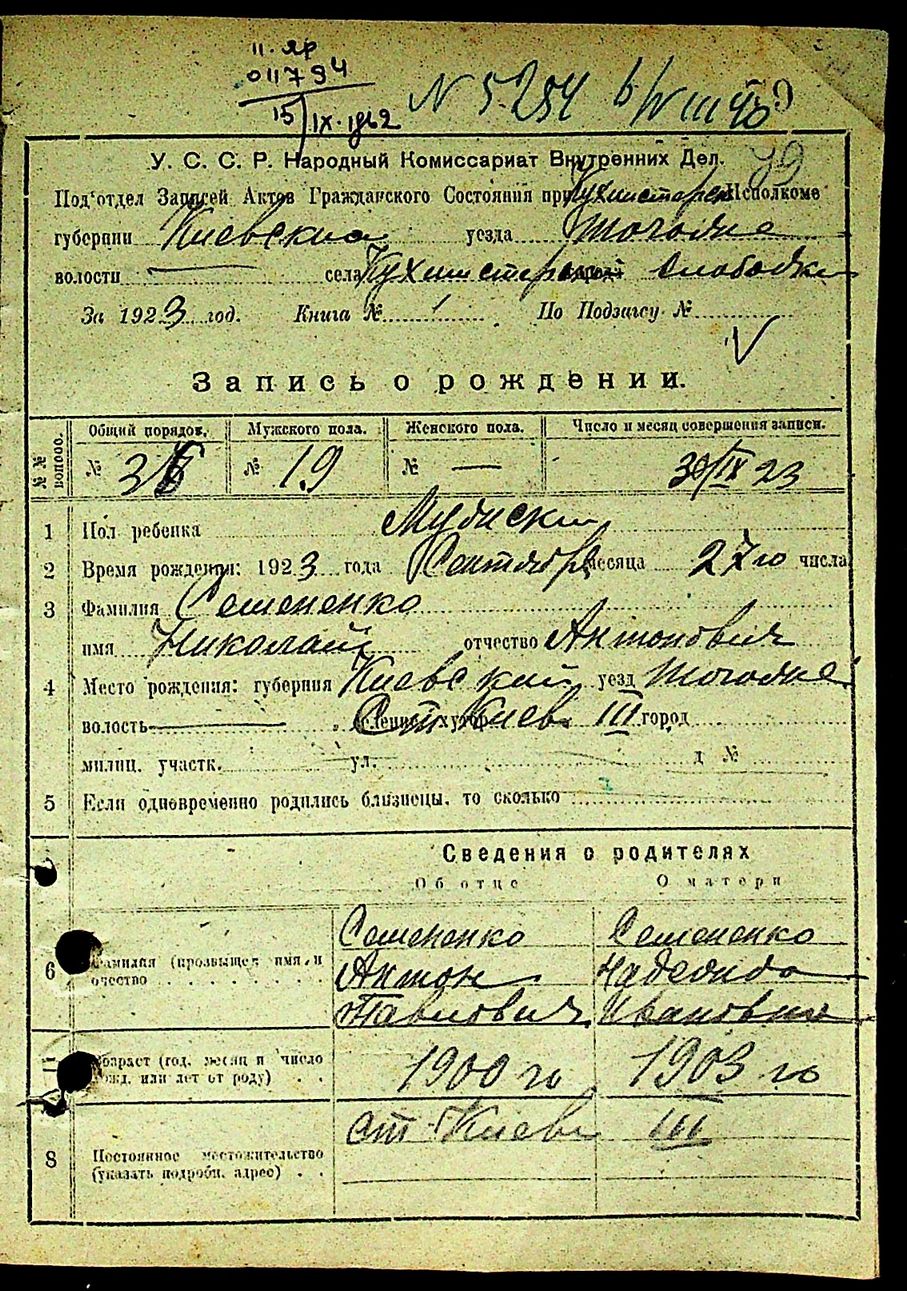 II-ЯР
011794
15/IX-1962
N 5254
У. С. С. Р. Народный Комиссариат Внутренних Дел.
Под'отдел Записей Актов Гражданского Состояния при Исполкоме
губернии Киевския уезда
волости — села Кухмистерск Слободки
За 1923 год. Книга № 1 По Подзагсу №
Запись о рождении.
№№ вопросс. Общий порядок. Мужского пола. Женского пола. Число и месяц совершения записи.
№ № 19 № — 30/IX 23
1 Пол ребенка
2 Время рождения: 1923 года Сентября месяца 27го числа
3 Фамилия Семененко
имя Николай отчество Антонович
4 Место рождения: губерния Киевский уезд
волость — Ст. Киев III город
милиц. участк. ул. д №
5 Если одновременно родились близнецы, то сколько
Сведения о родителях
Об отце О матери
Семененко Семененко
6 Фамилия (прозвище) имя и Антон Надежда
очество Павлович Ивановна
Возраст (год, месяц и число
рожд. или лет от роду) 1900 го 1903 го
ст Киев III
8 Постоянное местожительство
(указать подробн. адрес)